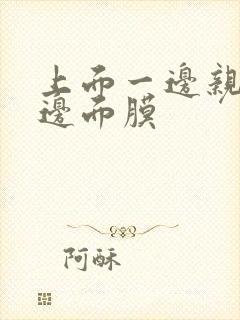 上而一邊親
邊而膜
阿酥